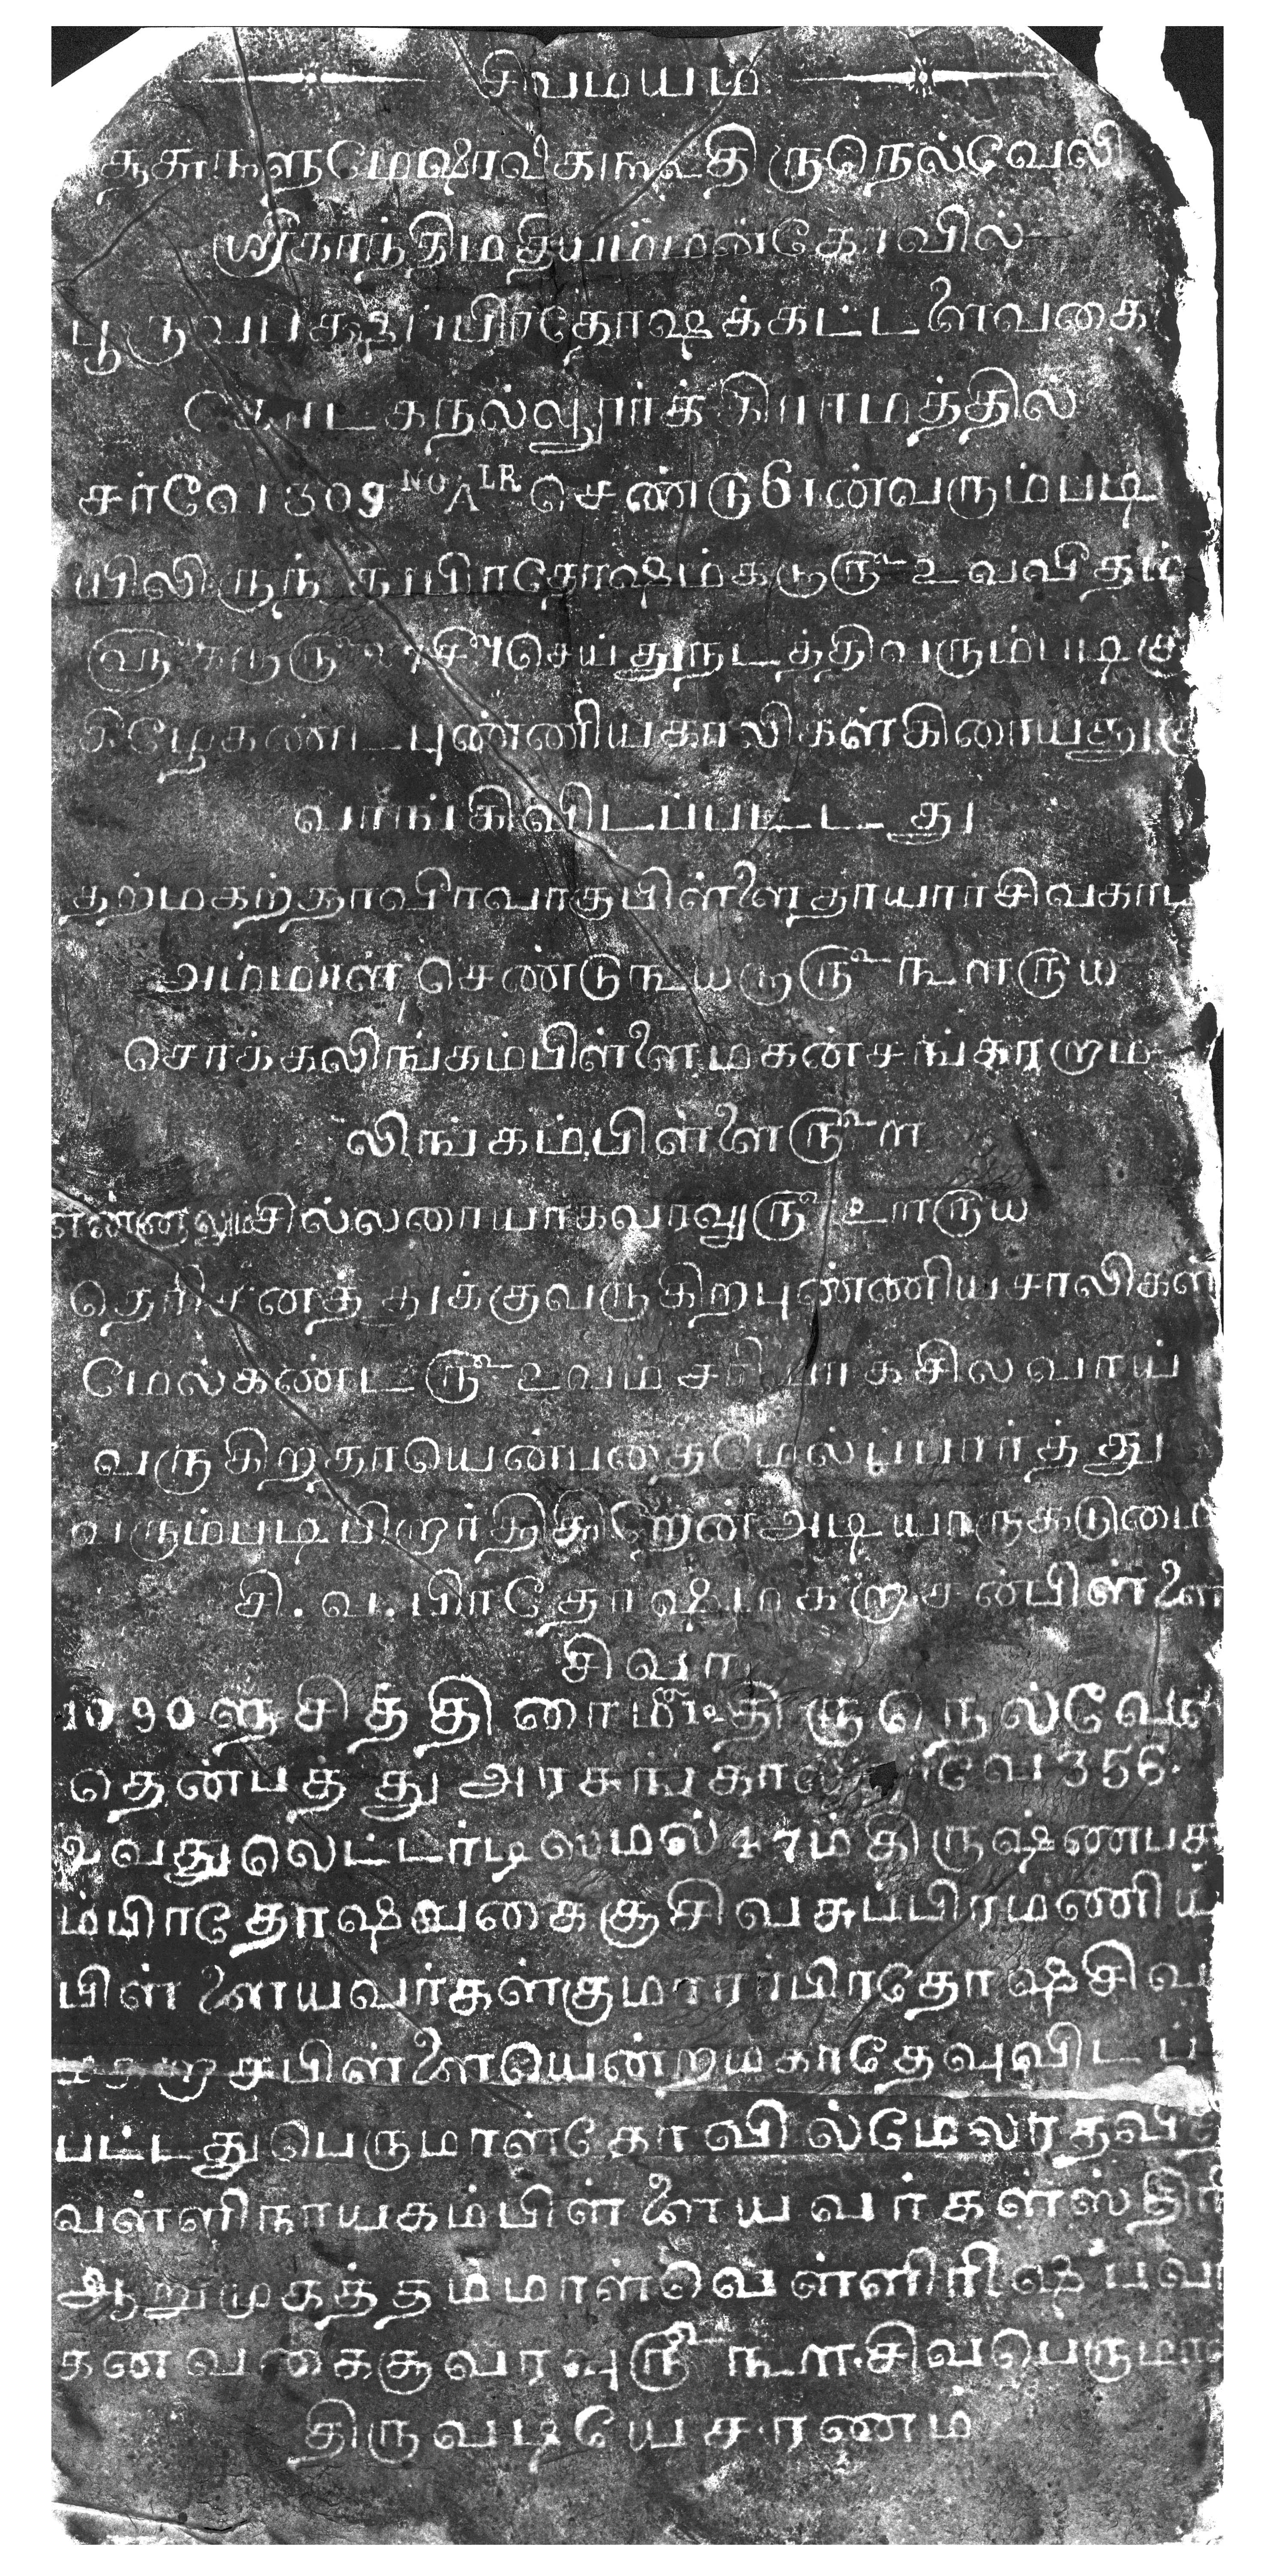 சிவமயம்
திருநெல்வேலி
ஸ்ரீகாந்திமதியம்மன்கோவில்
பூருவபக்ஷப்பிரதோஷக்கட்டளைவகை
கோடகநல்லூர்க்கிராமத்தில்
சர்வே 309 NO A LR செண்டு 61ன்வரும்படி
யிலிருந்து பிரதோஷம்க்கு ரூ உவவீதம்
செய்துநடத்திவரும்படிகு
கீழேகண்டபுண்ணியசாலிகள்கிரையத்துகு
வாங்கிவிடப்பட்டது
தற்மகற்தாவீரவாகுபிள்ளைதாயார்சிவகாமி
அம்மாள் செண்டு ௩௰௫ ரூ ௩௱௫௰
சொக்கலிங்கம்பிள்ளைமகன்சங்கரராம
லிங்கம்பிள்ளை ரூ ௱
சில்லரையாகவரவு ரூ ௨௱௫௰
தெரிசனத்துக்குவருகிறபுண்ணியசாலிகள்
மேல்கண்ட ரூ உவம் சரியாகசிலவாய்
வருகிறதாயென்பதைமேல்ப்பார்த்து
வரும்படிபிறார்திக்கிறேன்அடியாருக்கடுமை
சி.வ.பிரதோஷம்சங்கறசன்பிள்ளை
சிவா
1090 ௵ சித்திரை ௴ திருநெல்வேலி
தென்பத்து அரசங்கால் சர்வே 356.
வதுலெட்டர்டிமேல் 47ம் திருஷணபக்ஷ
ம்பிரதோஷவகைகுசிவசுப்பிரமணிய
பிள்ளையவர்கள்குமாரர்பிரதோஷசிவ
சங்கறசுபிள்ளையென்றயகாதேவுவிடப்
பட்டதுபெருமாள்கோவில்மேலரதவீதி
வள்ளிநாயகம்பிள்ளையவர்கள்ஸ்திரி
ஆறுமுகத்தம்மாள்வெள்ளிரிஷபவா
கனவகைகுவரவு ரூ ௩௱.சிவபெருமான்
திருவடியேசரணம்